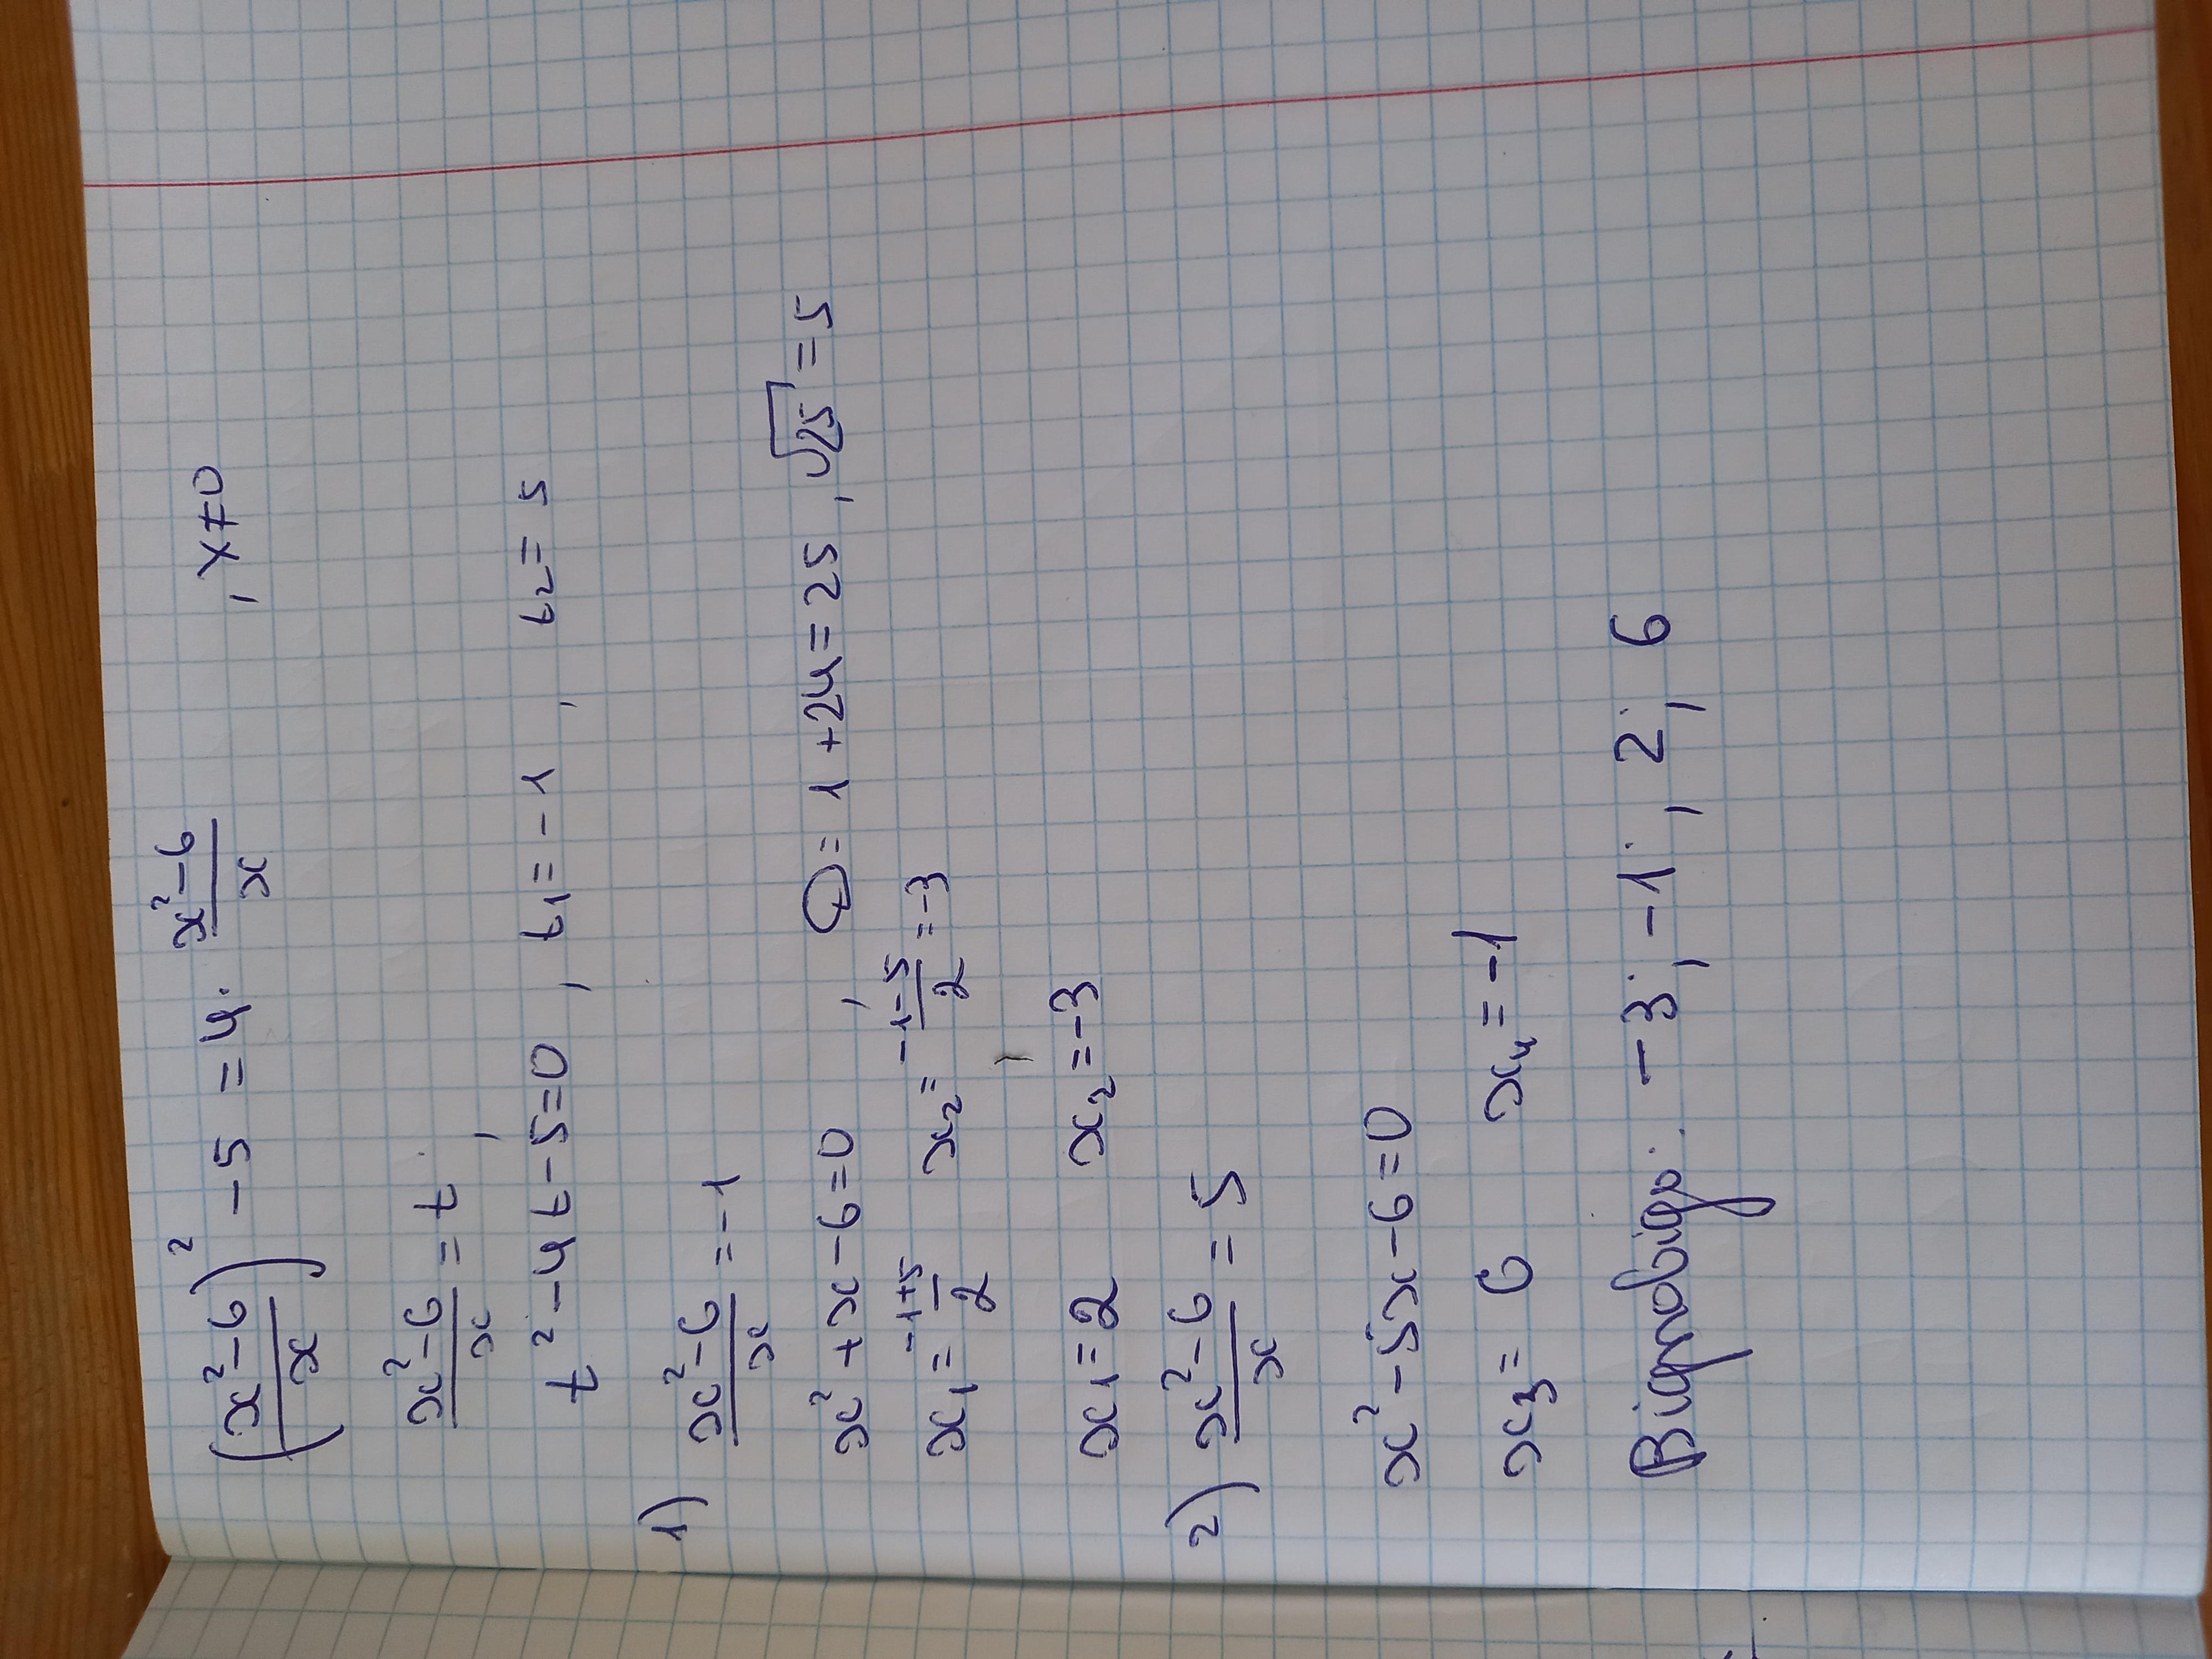 ((x²-6)/x)² - 5 = 4 · (x²-6)/x , x≠0
(x²-6)/x = t ,
t² - 4t - 5 = 0 , t₁ = -1 , t₂ = 5
1) (x²-6)/x = -1
x² + x - 6 = 0 , D = 1 + 24 = 25 , √25 = 5
x₁ = (-1+5)/2 x₂ = (-1-5)/2 = -3
x₁ = 2 , x₂ = -3
2) (x²-6)/x = 5
x² - 5x - 6 = 0
x₃ = 6 x₄ = -1
Відповідь: -3; -1; 2; 6